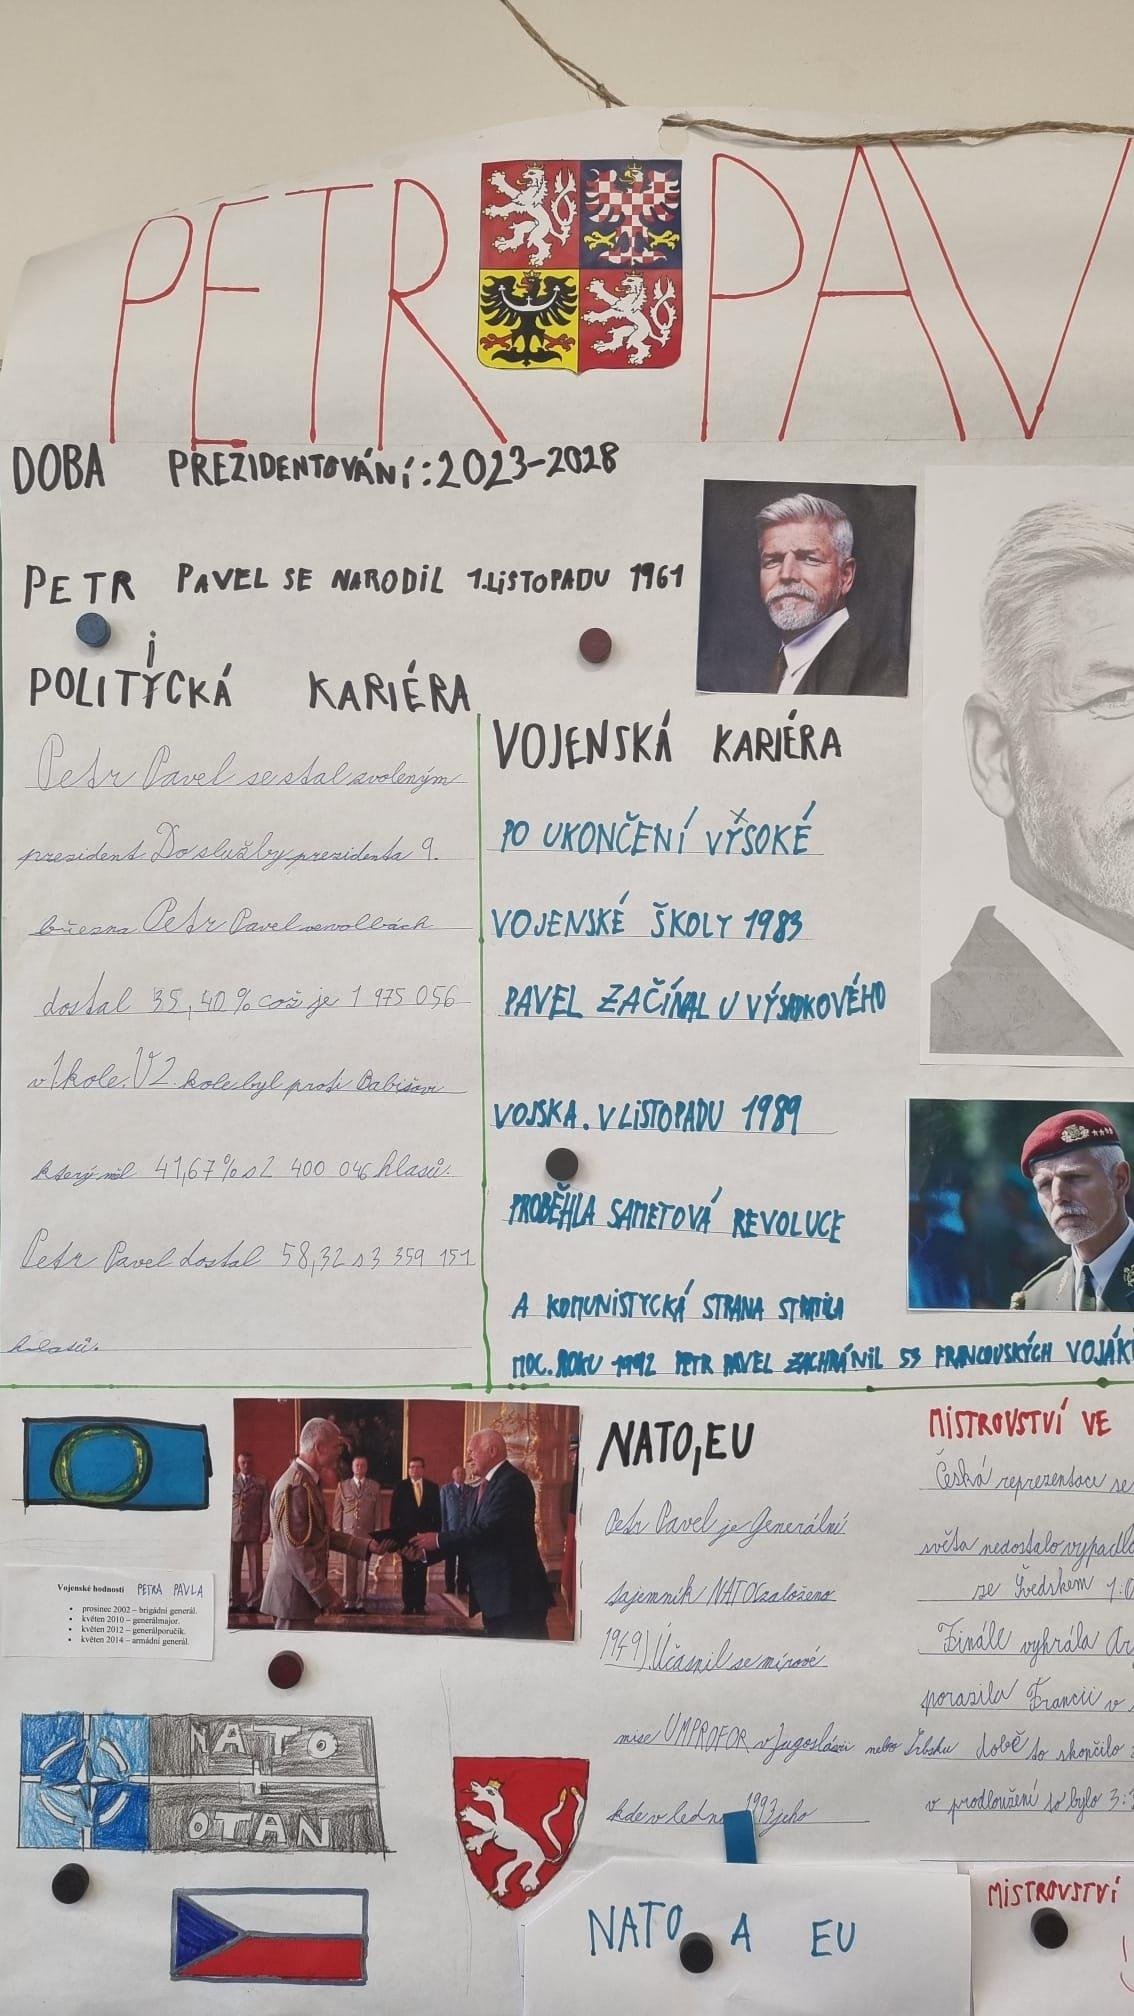 PETR PAV
DOBA PREZIDENTOVÁNÍ: 2023-2028
PETR PAVEL SE NARODIL 1. LISTOPADU 1961
i
POLITYCKÁ KARIÉRA
Petr Pavel se stal zvoleným
president Do služby prezidenta 9.
března Petr Pavel ve volbách
dostal 35,40% což je 1 975 056
v 1 kole. V 2. kole byl proti Babišovi
který měl 41,67% s 2 400 046 hlasů.
Petr Pavel dostal 58,32 s 3 359 151
hlasů.
VOJENSKÁ KARIÉRA
PO UKONČENÍ VYSOKÉ
VOJENSKÉ ŠKOLY 1983
PAVEL ZAČÍNAL U VÝSADKOVÉHO
VOJSKA. V LISTOPADU 1989
PROBĚHLA SAMETOVÁ REVOLUCE
A KOMUNISTYCKÁ STRANA STRATILA
MOC. ROKU 1992 PETR PAVEL ZACHRÁNIL 53 FRANCOUSKÝCH VOJÁK
Vojenské hodnosti PETRA PAVLA
• prosinec 2002 – brigádní generál.
• květen 2010 – generálmajor.
• květen 2012 – generálporučík.
• květen 2014 – armádní generál.
NATO
OTAN
NATO, EU
Petr Pavel je Generální
tajemník NATO (založeno
1949). Účasnil se mírové
mise UMPROFOR v Jugoslávii nebo Srbsku
kde v lednu 1993 jeho
NATO A EU
MISTROVSTVÍ VE
Česká reprezentace se
světa nedostalo vypadlo
se Švédskem 1:0
Finále vyhrála Ar
porazila Francii v
době to skončilo
v prodloužení to bylo 3:3
MISTROVSTVÍ